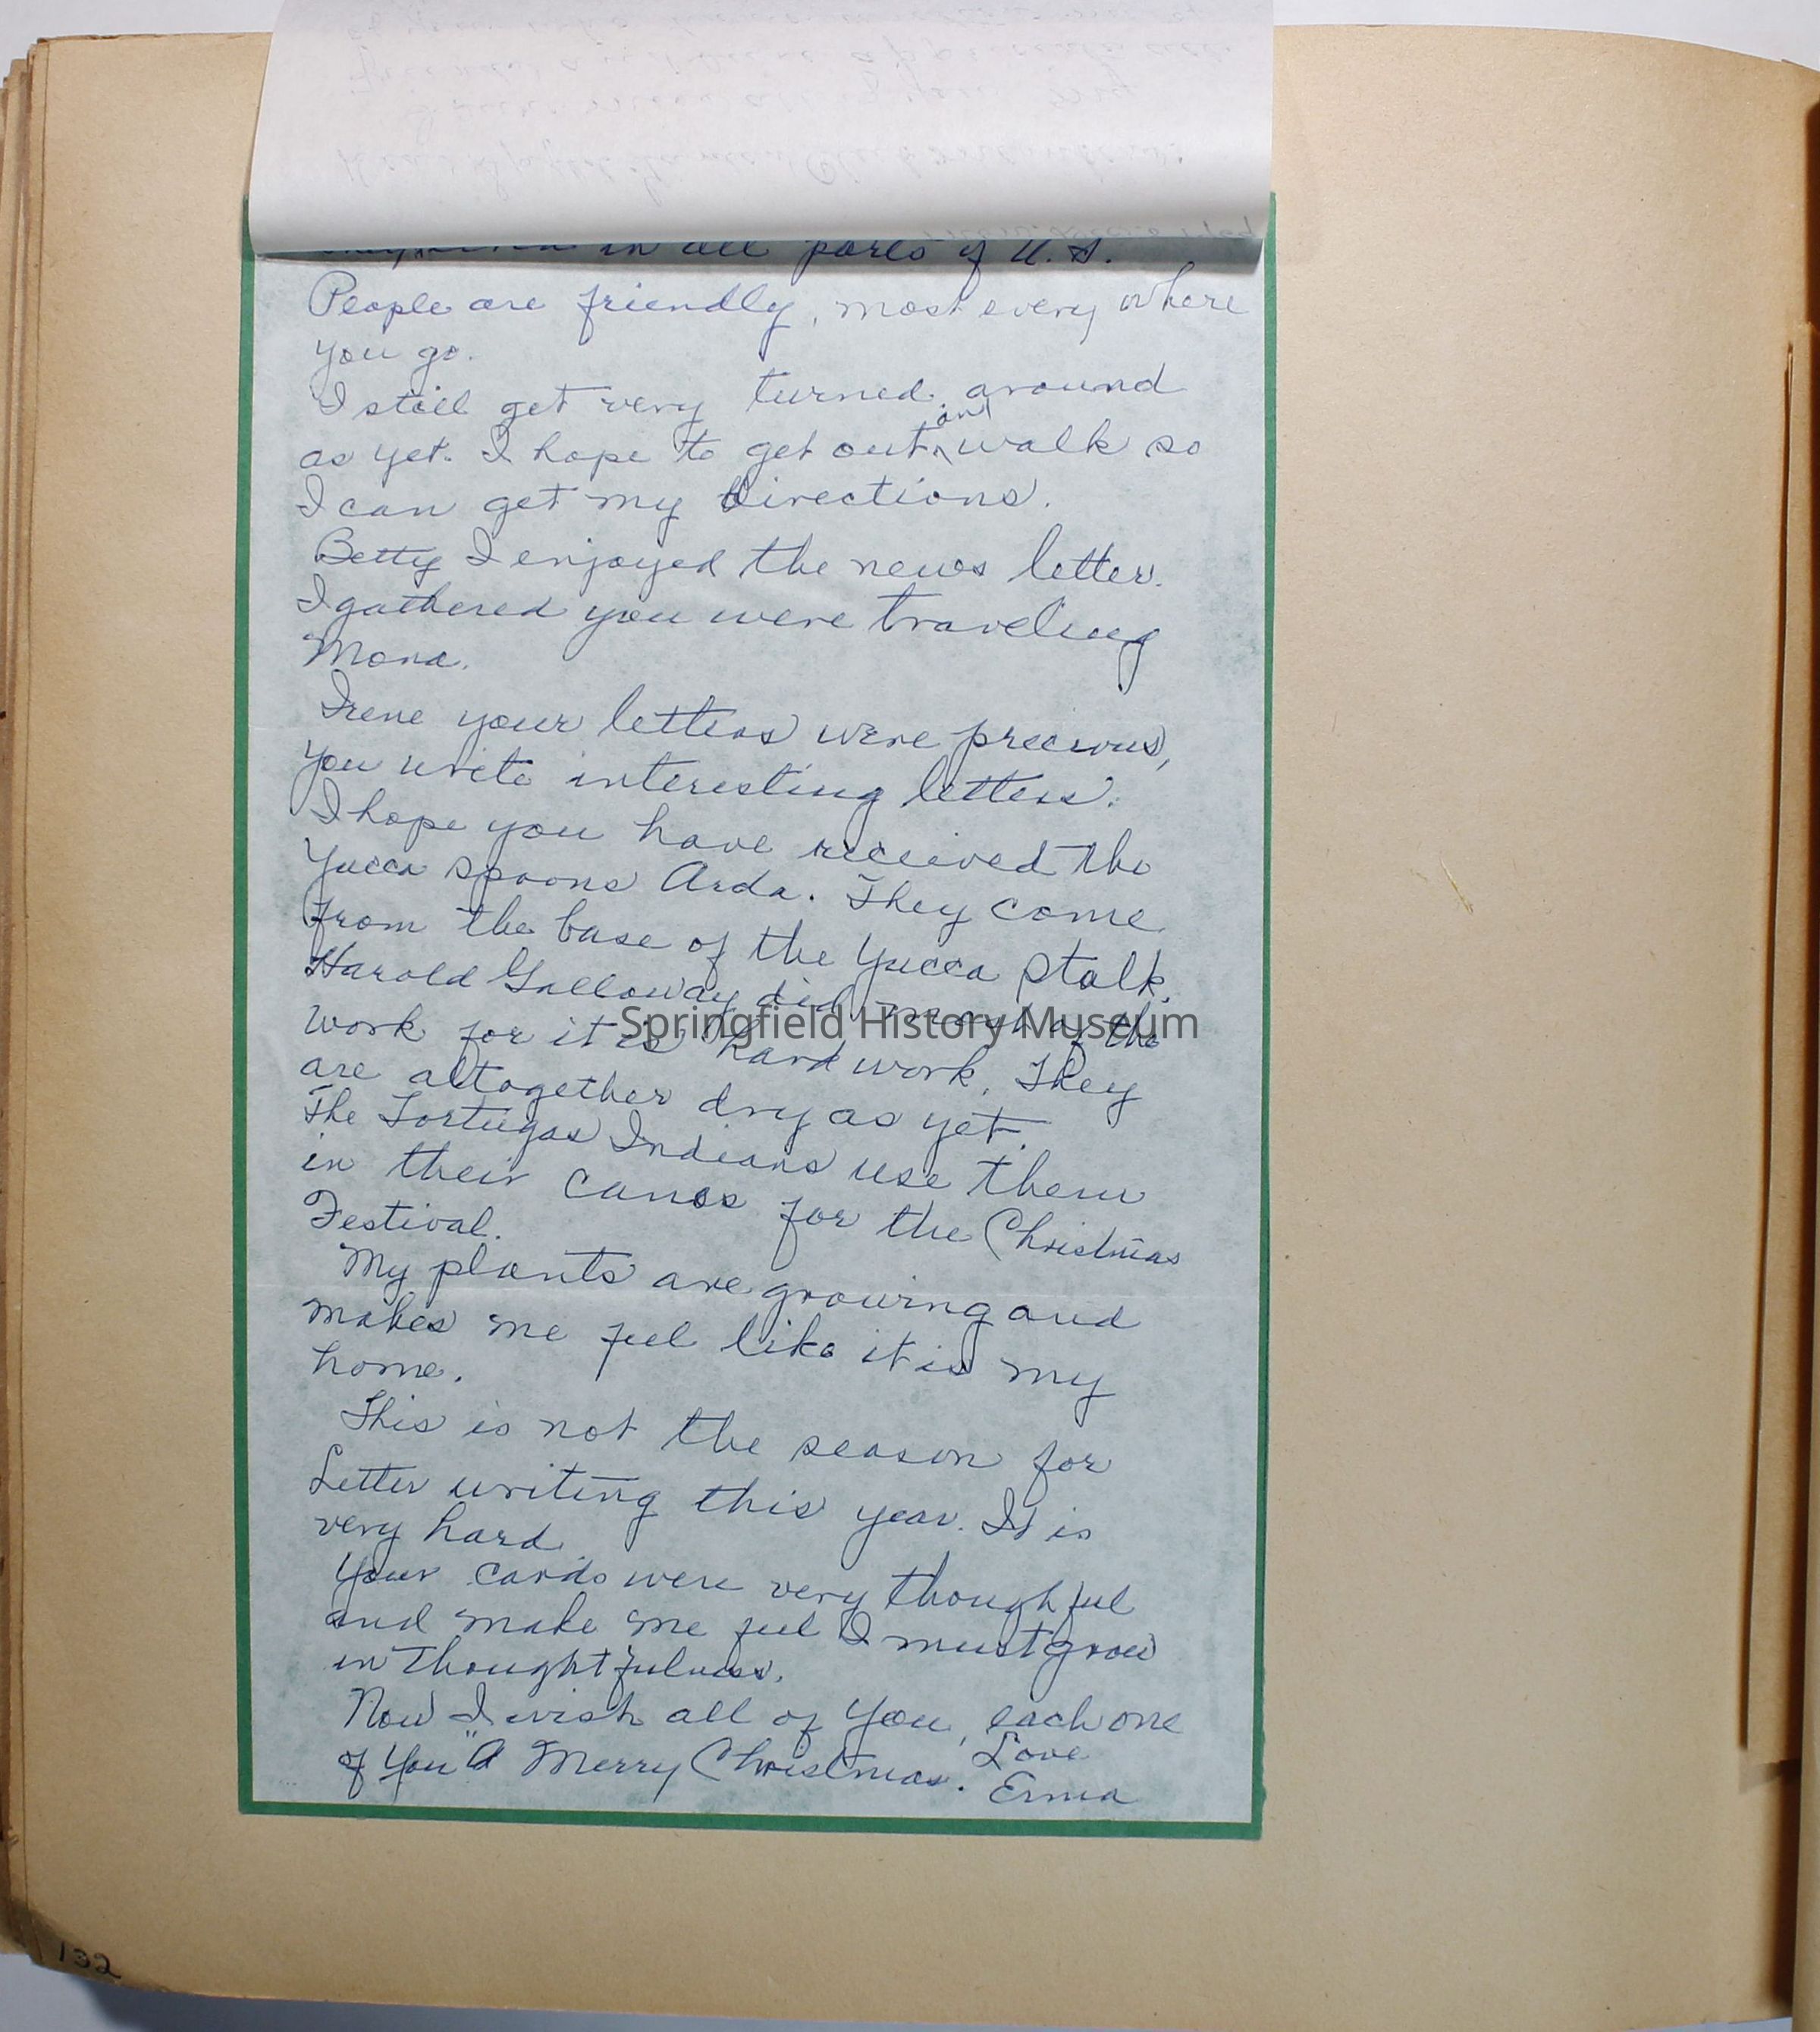 in all parts of U.S.
People are friendly, most every where
you go.
I still get very turned around
as yet. I hope to get out and walk so
I can get my directions.
Betty I enjoyed the news letter.
I gathered you were traveling
Mona.
Irene your letters were precious,
you write interesting letters.
I hope you have received the
Yucca spoons Arda. They come
from the base of the Yucca stalk.
Harold Galloway did much of the
work for it is hard work. They
are altogether dry as yet.
The Tortugas Indians use them
in their canes for the Christmas
Festival.
My plants are growing and
makes me feel like it is my
home.
This is not the season for
Letter writing this year. It is
very hard.
Your cards were very thoughtful
and make me feel I must grow
in thoughtfulness.
Now I wish all of you, each one
of you "A Merry Christmas.
Love
Erma
Springfield History Museum
132